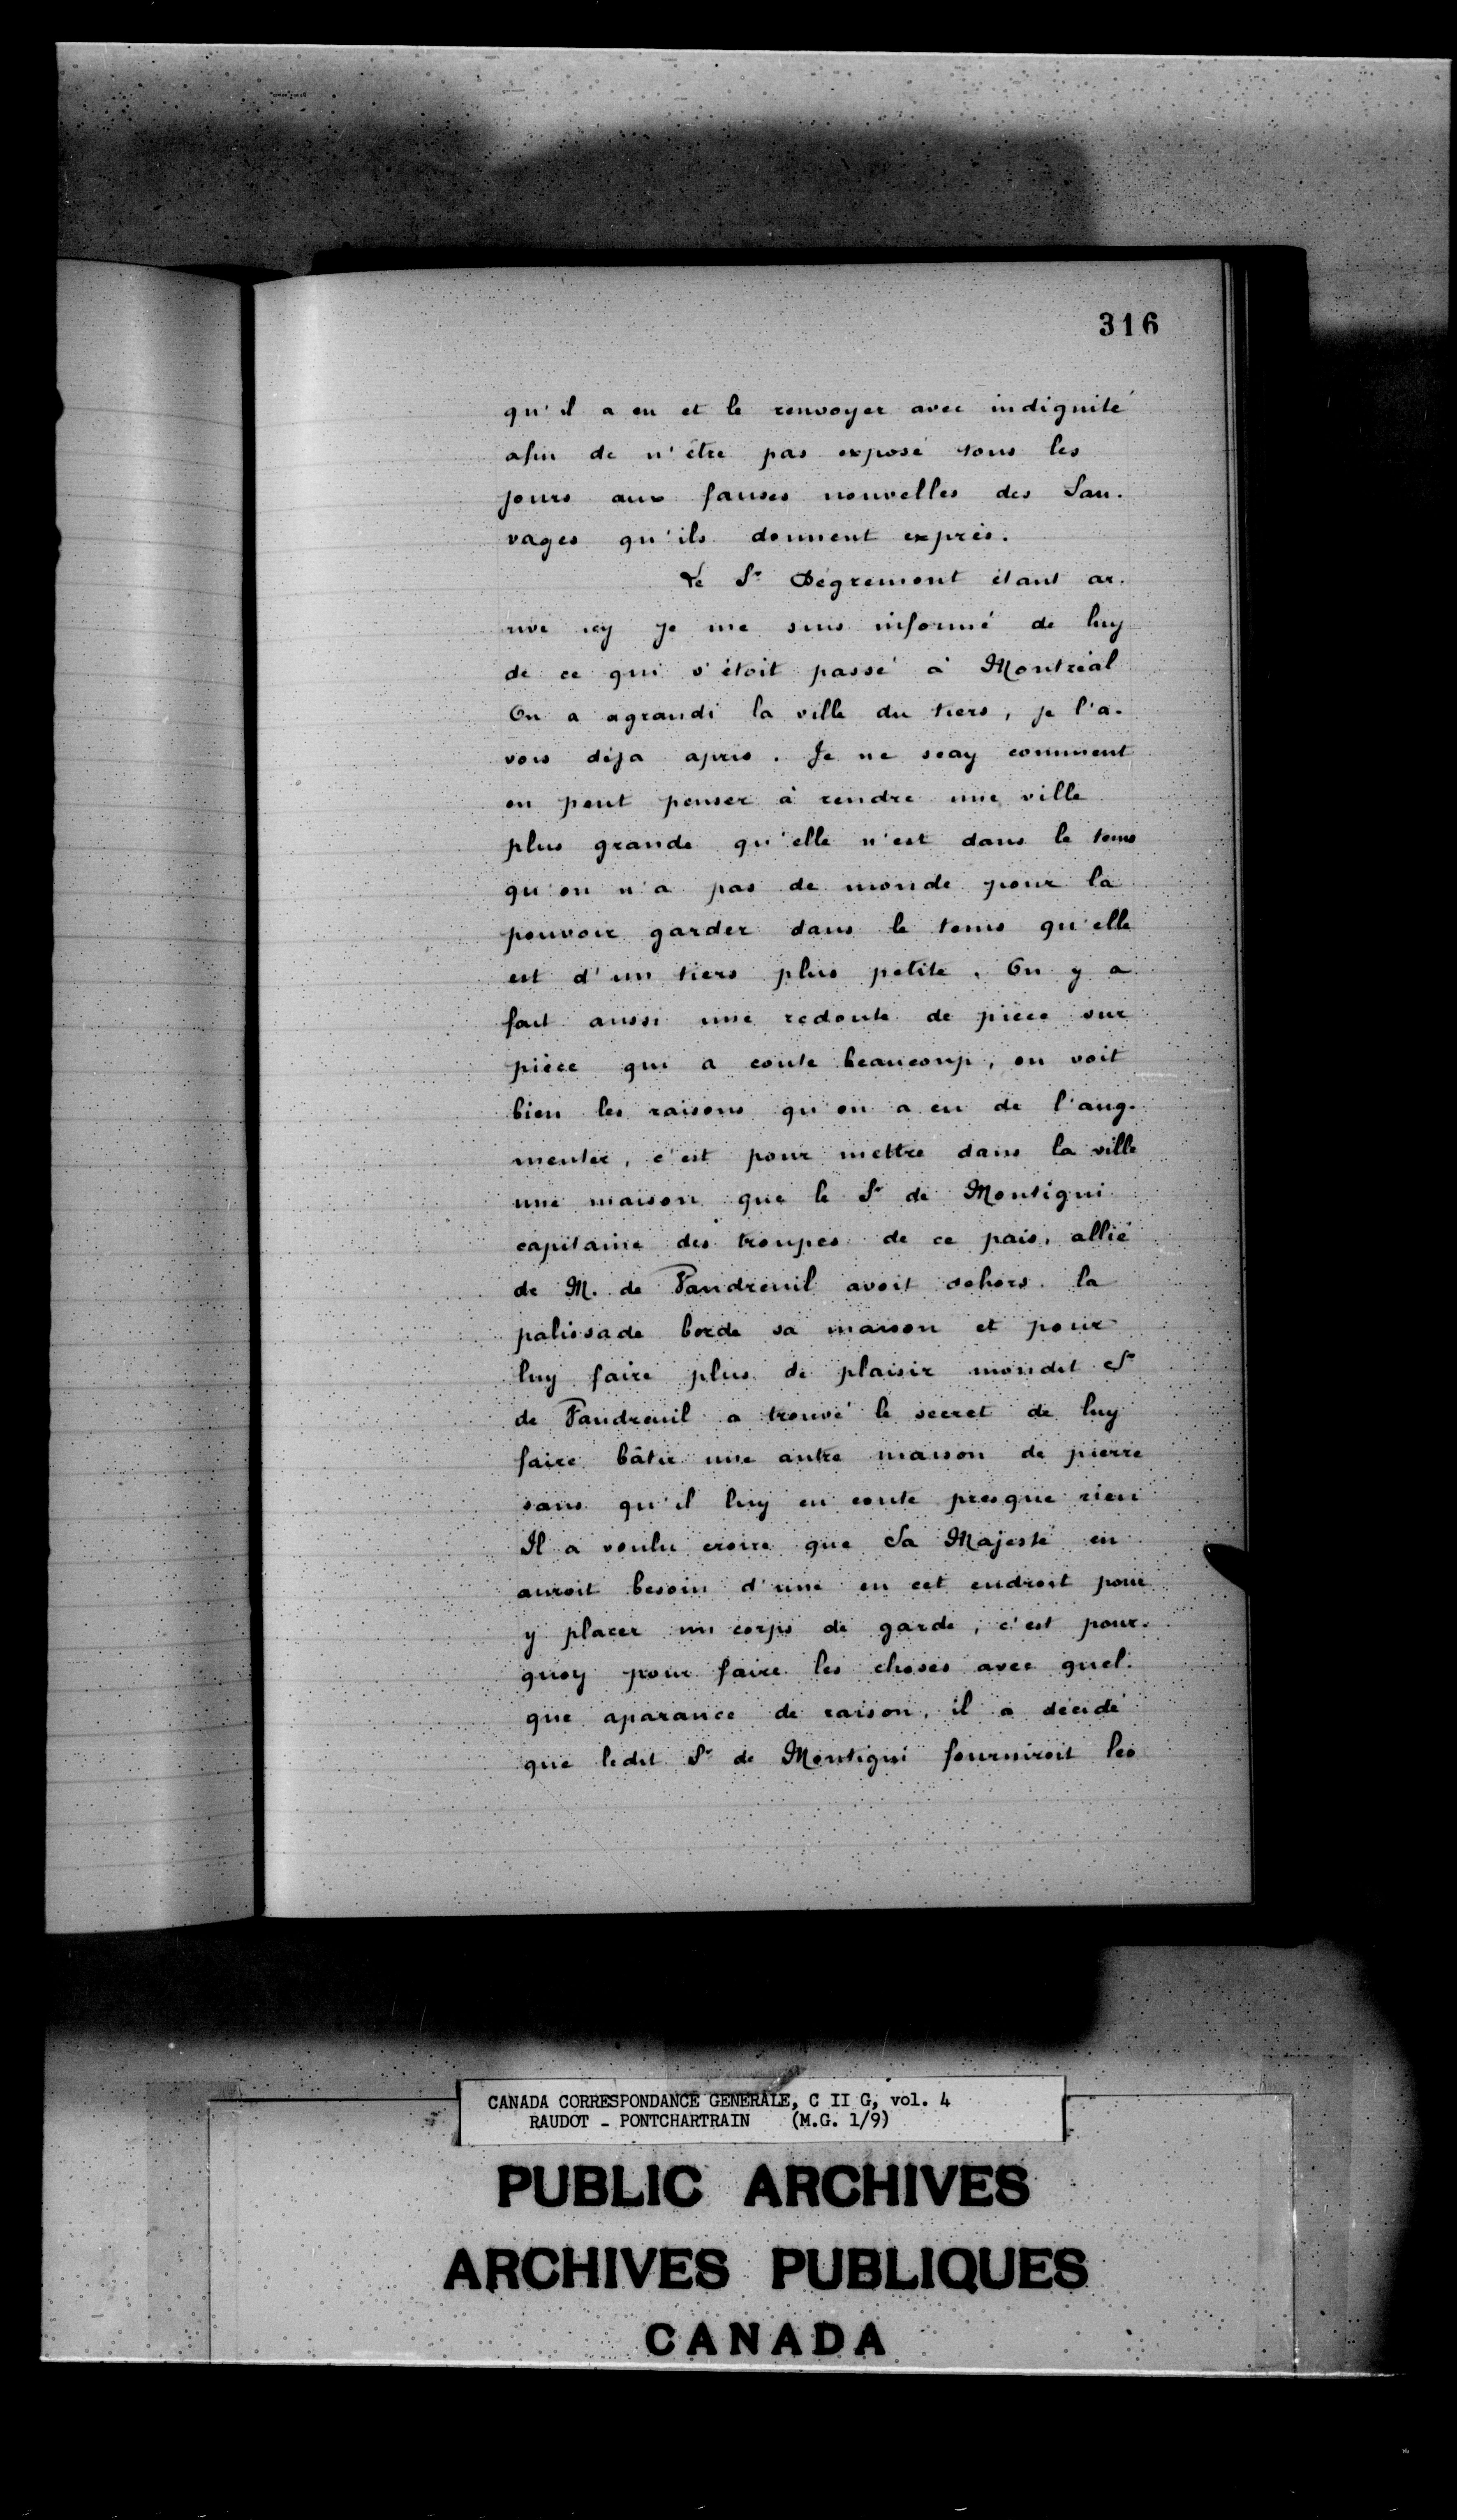 316
qu'il a eu et le renvoyer avec indignité
afin de n'être pas exposé tous les
jours aux fauses nouvelles des Sau-
vages qu'ils donnent exprès.
Le Sr Dégremont étant ar-
rivé icy je me suis informé de luy
de ce qui s'étoit passé à Montréal
On a agrandi la ville du tiers, je l'a-
vois déja apris. Je ne scay comment
on peut penser à rendre une ville
plus grande qu'elle n'est dans le tems
qu'on n'a pas de monde pour la
pouvoir garder dans le tems qu'elle
est d'un tiers plus petite. On y a
fait aussi une redoute de pièce sur
pièce qui a couté beaucoup, on voit
bien les raisons qu'on a eu de l'aug-
menter, c'est pour mettre dans la ville
une maison que le Sr de Montigni
capitaine des troupes de ce pais, allié
de M. de Vaudreuil avoit dehors. la
palissade borde sa maison et pour
luy faire plus de plaisir mondit Sr
de Vaudreuil a trouvé le secret de luy
faire bâtir une autre maison de pierre
sans qu'il luy en coute presque rien
Il a voulu croire que Sa Majesté en
auroit besoin d'une en cet endroit pour
y placer un corps de garde, c'est pour-
quoy pour faire les choses avec quel-
que aparance de raison, il a décidé
que ledit Sr de Montigni fourniroit les
CANADA CORRESPONDANCE GENERALE, C II G, vol. 4
RAUDOT - PONTCHARTRAIN (M.G. 1/9)
PUBLIC ARCHIVES
ARCHIVES PUBLIQUES
CANADA